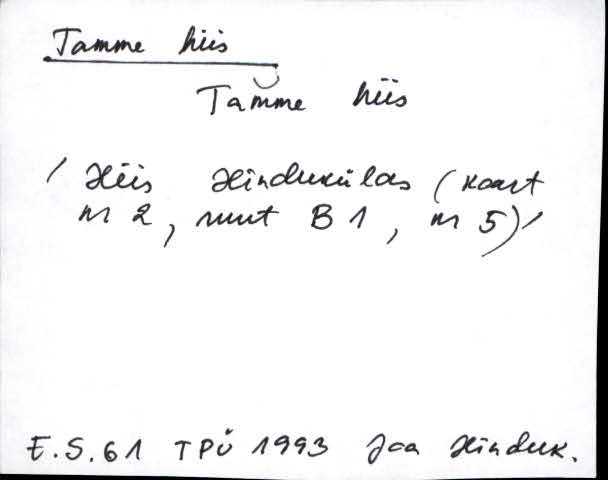 Tamme hiis
Tamme hiis
/ Hiis Hindukülas (kaart
nr 2, ruut B 1, nr 5)/
E.S.61 TPÜ 1993 Jaa Hinduk.